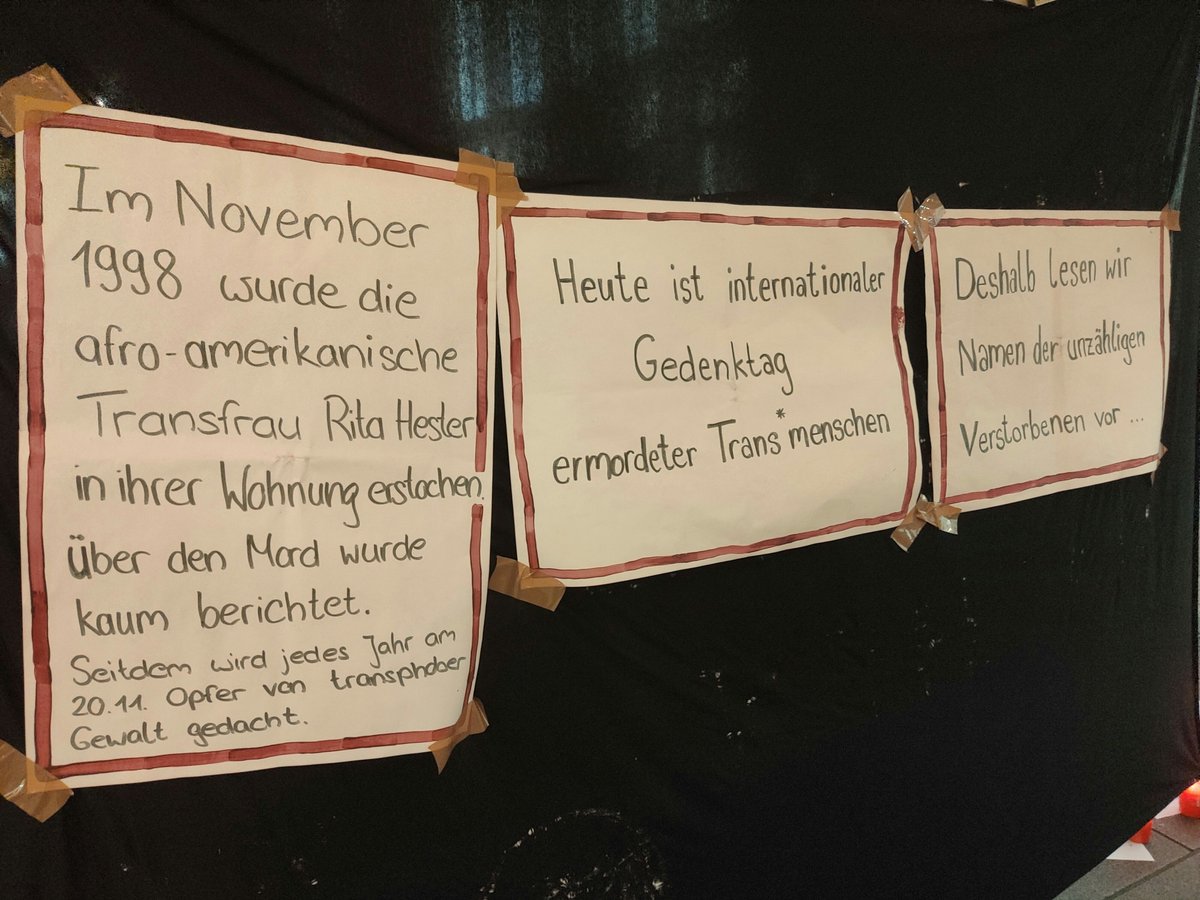 Im November
1998 wurde die
afro-amerikanische
Transfrau Rita Hester
in ihrer Wohnung erstochen.
Über den Mord wurde
kaum berichtet.
Seitdem wird jedes Jahr am
20.11. Opfer von transphober
Gewalt gedacht.
Heute ist internationaler
Gedenktag
ermordeter Trans*menschen
Deshalb lesen wir
Namen der unzähligen
Verstorbenen vor ...